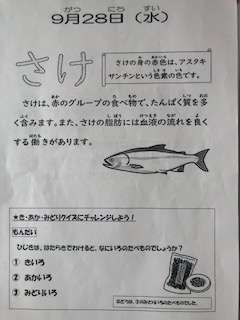 9月28日（水）
さけ
さけの身の赤色は、アスタキ
サンチンという色素の色です。
さけは、赤のグループの食べ物で、たんぱく質を多
く含みます。また、さけの脂肪には血液の流れを良く
する働きがあります。
★き・あか・みどりクイズにチャレンジしよう！
もんだい
ひじきは、はたらきでわけると、なにいろのたべものでしょうか？
① きいろ
② あかいろ
③ みどりいろ